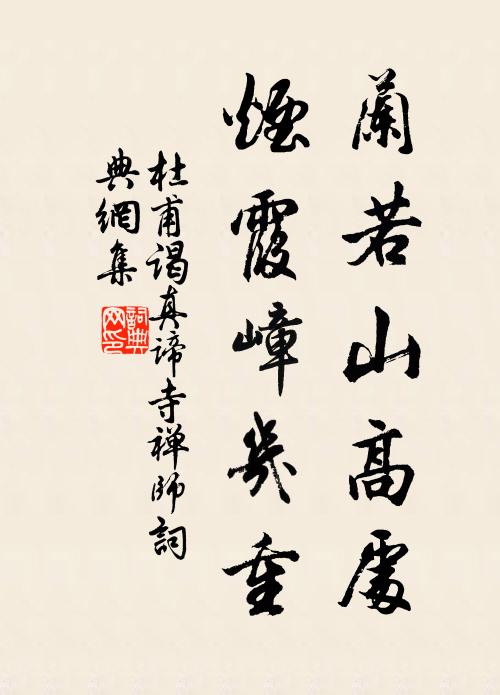 蘭若山高處
煙霞嶂幾重
杜甫謁真諦寺禅師詞
典網集
詞典
网印